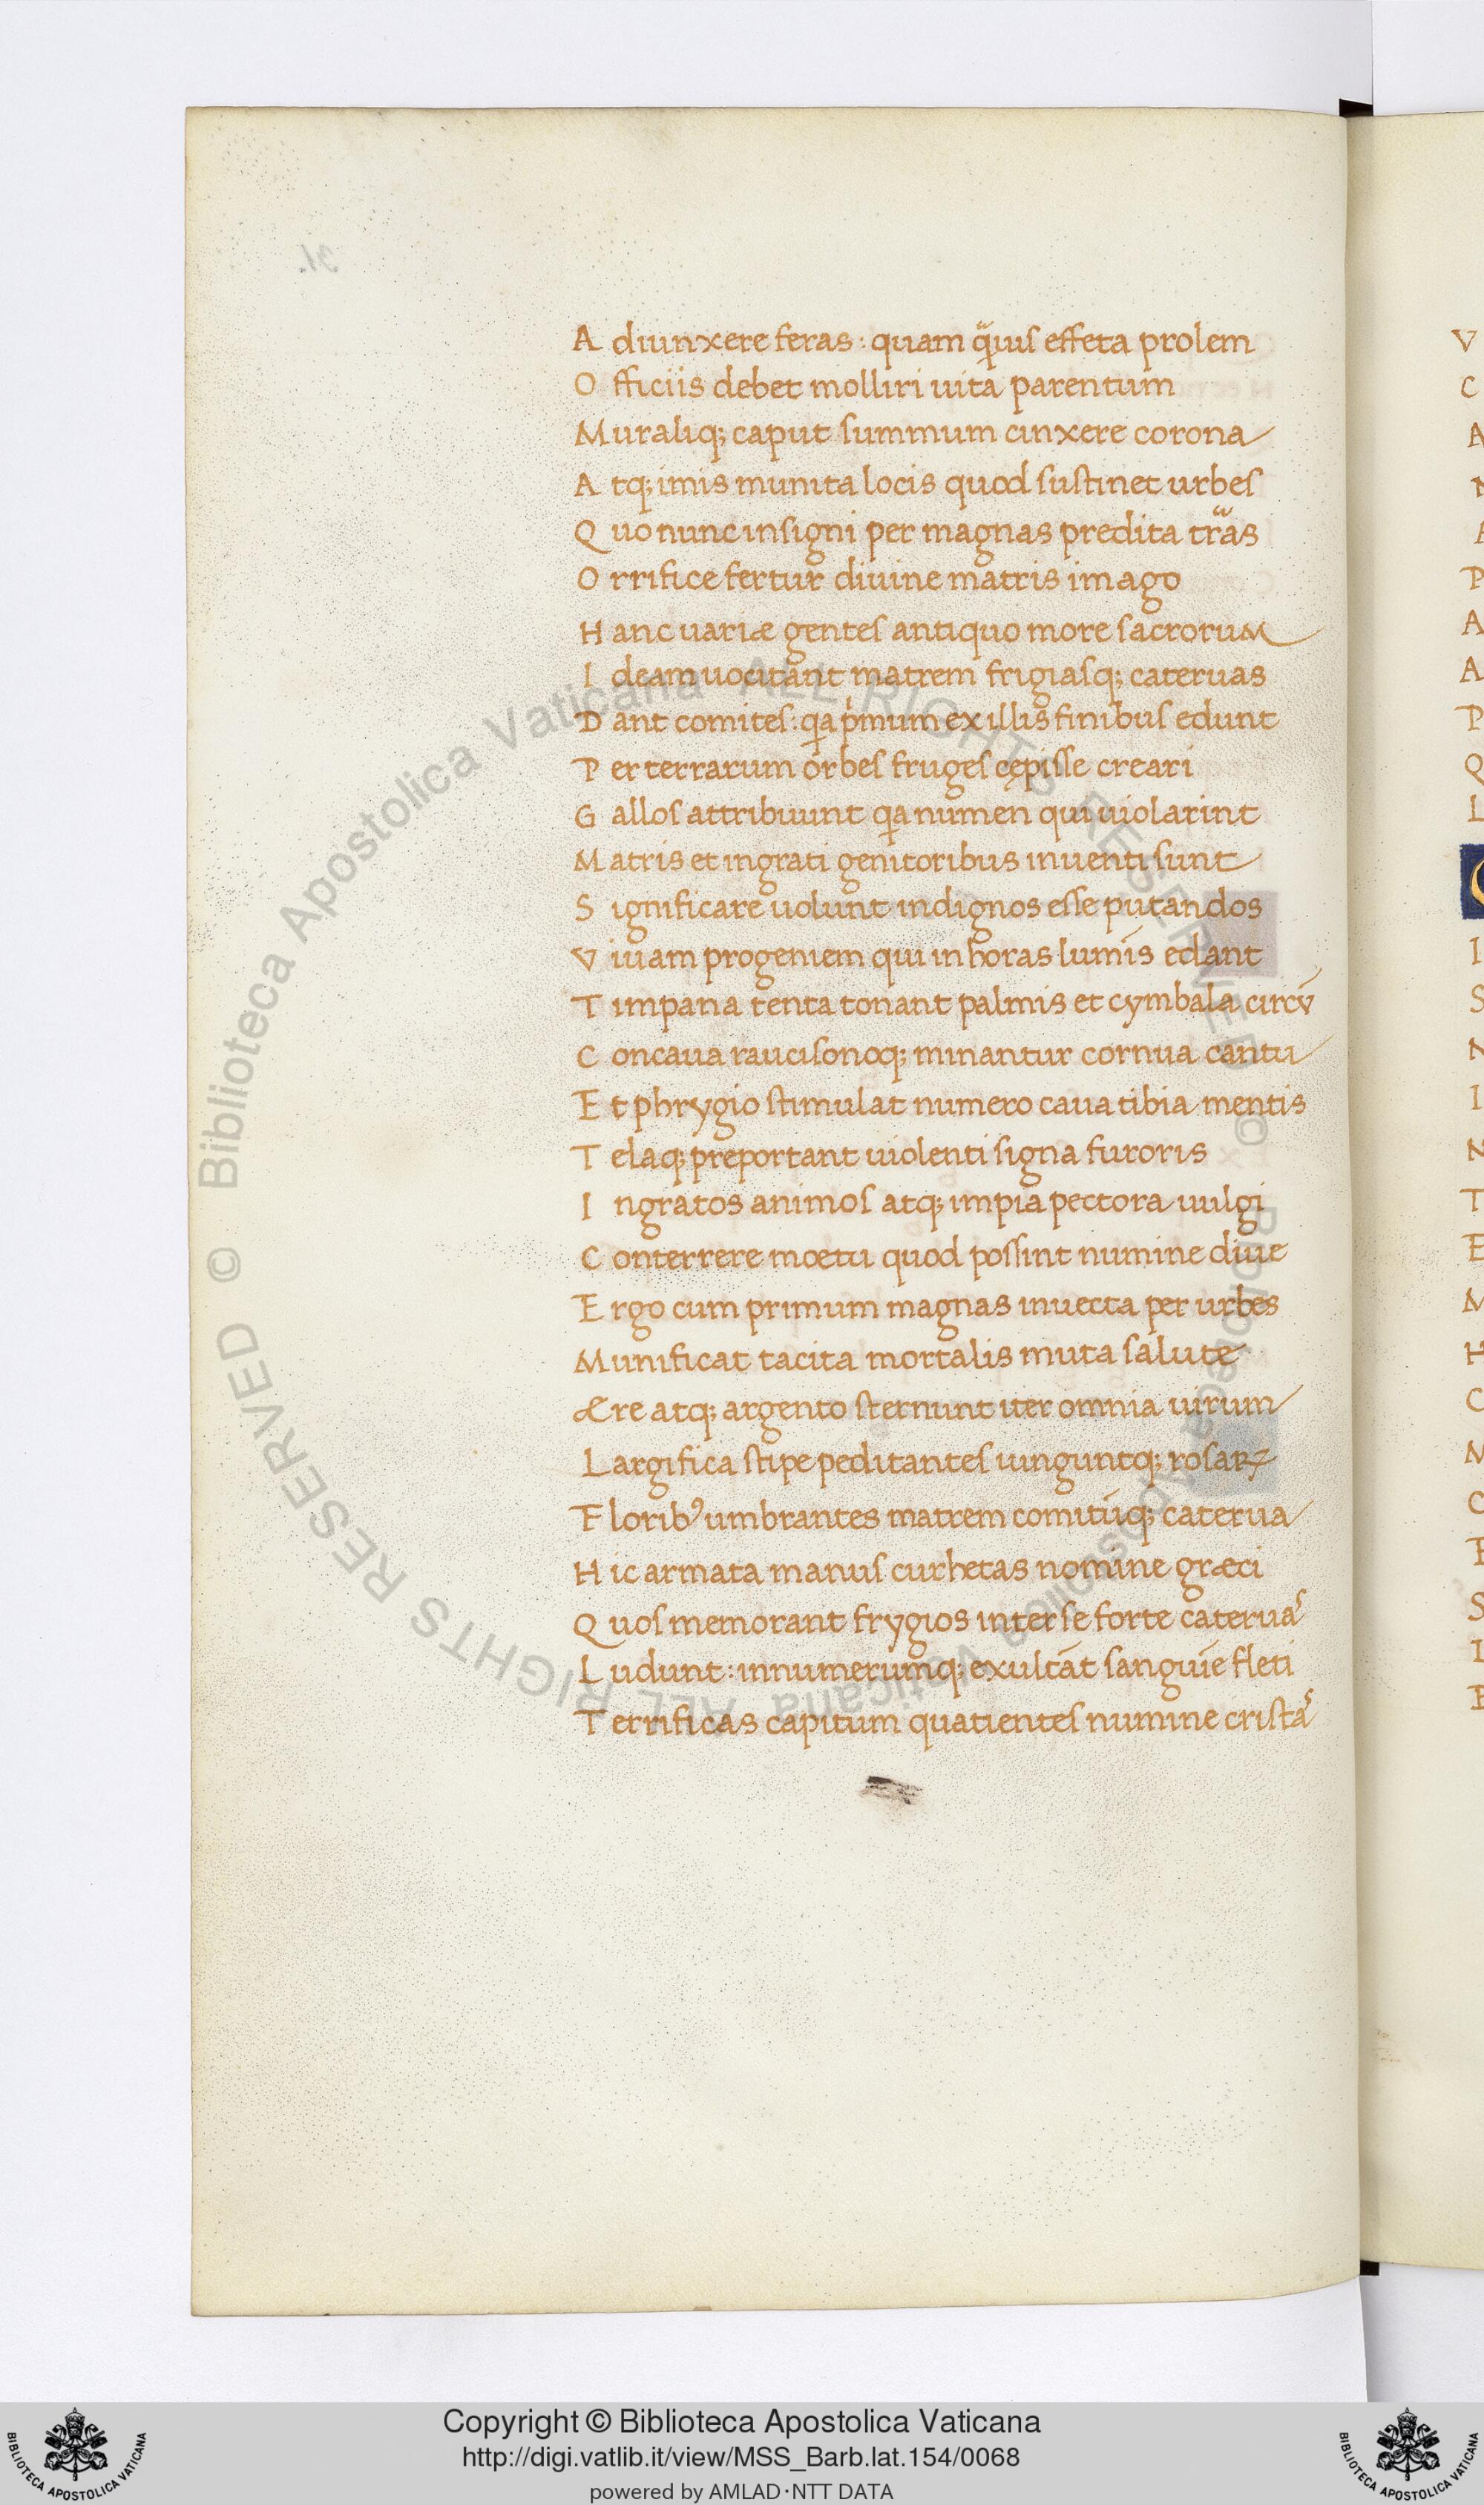 A diunxere feras : quam q̃uiſ effeta prolem
O fficiis debet molliri uita parentum
M uraliq; caput ſummum cinxere corona
A tq; imis munita locis quod ſuſtinet urbeſ
Q uo nunc inſigni per magnas predita tr̃as
O rrifice fertur diuine matris imago
H anc uariæ genteſ antiquo more ſacrorum
I deam uocitant matrem frigiaſq; cateruas
D ant comiteſ : qa pͥmum ex illis finibuſ edunt
P er terrarum orbeſ frugeſ cępiſſe creari
G alloſ attribuunt qa numen qui uiolarint
M atris et ingrati genitoribus inuenti ſunt
S ignificare uolunt indignos eſſe putandos
V iuam progeniem qui in horas lumis̄ edant
T impana tenta tonant palmis et cymbala circū
C oncaua rauciſonoq; minantur cornua cantu
E t phrygio ſtimulat numero caua tibia mentis
T elaq; preportant uiolenti ſigna furoris
I ngratos animoſ atq; impia pectora uulgi
C onterrere moetu quod poſſint numine diue
E rgo cum primum magnas inuecta per urbes
M unificat tacita mortalis muta ſalute
Ære atq; argento ſternunt iter omnia uirum
L argifica ſtipe peditanteſ uinguntq; roſaꝝ
F loribꝰ umbrantes matrem comitūq; caterua
H ic armata manuſ curhetas nomine græci
Q uoſ memorant frygios inter ſe forte cateruaſ
L udunt : innumerumq; exultāt ſanguīe fleti
T errificas capitum quatienteſ numine criſtaſ
31.
V
C
A
P
A
A
P
Q
L
I
S
N
I
N
T
E
M
H
C
M
C
S
© Biblioteca Apostolica Vaticana ALL RIGHTS RESERVED © Biblioteca Apostolica Vaticana ALL RIGHTS RESERVED
Copyright © Biblioteca Apostolica Vaticana
http://digi.vatlib.it/view/MSS_Barb.lat.154/0068
powered by AMLAD·NTT DATA
BIBLIOTECA APOSTOLICA VATICANA
BIBLIOTECA APOSTOLICA VATICANA